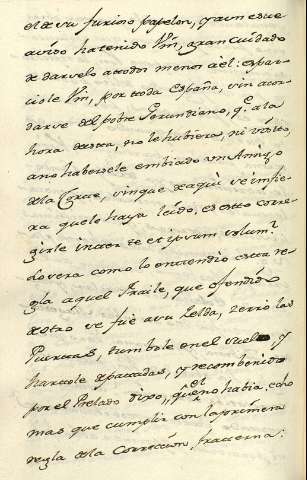 el de su furioso papelon, y aun es de
avido ha tenido Vm, a gran cuidado
de darselo a todos menos a èl: espar-
ciole Vm, por toda España, sin acor-
darse del pobre Perundiano, q.e a la
hora de esta, no le hubiera, ni visto,
a no habersele embiado un Amigo
de la Corte, sin que de aqui se infie-
ra que le haya leido, es esto corre-
girle inter te et ipsum solum?
Lo sera como lo entendio esta re-
gla aquel Fraile, que ofendido
de otro se fuè a su Zelda, zerrò las
Puertas, tumbole en el suelo, y
hartole de patadas, y recombenido
por el Prelado dixo, q.e el no habia echo
mas que cumplir con la primera
regla de la Correccion, fraterna: